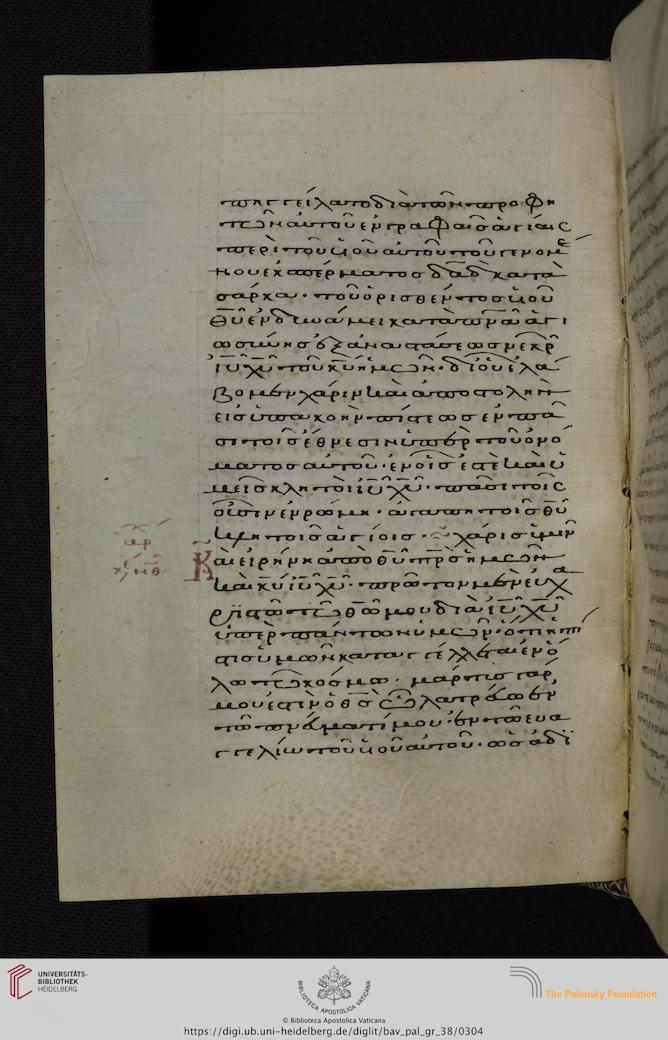 πηγγείλατο διὰ τῶν προφη
τῶν αὐτοῦ ἐν γραφαῖς ἁγίαις
περὶ τοῦ υἱοῦ αὐτοῦ τοῦ γενομέ
νου ἐκ σπέρματος δαδ κατὰ
σάρκα · τοῦ ὁρισθέντος υἱοῦ
θυ ἐν δυνάμει κατὰ πνα ἁγι
ωσύνης ἐξ ἀναστάσεως νεκρ
ιυ χυ τοῦ κυ ἡμῶν · δι οὗ ἐλά
βομεν χάριν καὶ ἀποστολὴν
εἰς ὑπακοὴν πίστεως ἐν πᾶ
σι τοῖς ἔθνεσιν ὑπὲρ τοῦ ὀνό
ματος αὐτοῦ · ἐν οἷς ἐστὲ καὶ ὑ
μεῖς κλητοὶ ιυ χυ · πᾶσι τοῖς
οὖσιν ἐν ρώμη · ἀγαπητοῖς θυ
κλητοῖς ἁγίοις · χάρις ὑμῖν
Καὶ εἰρήνη ἀπὸ θυ πρς ἡμῶν
καὶ κυ ιυ χυ · πρῶτον μὲν εὐχα
ριστῶ τῶ θω μου διὰ ιυ χυ
ὑπὲρ πάντων ὑμῶν · ὅτι ἡ πί
στις ὑμῶν καταγγέλλεται ἐν ὅ
λω τῶ κόσμω · μάρτυς γάρ
μου ἐστὶν ὁ θς ᾧ λατρεύω ἐν
τῶ πνεύματί μου · ἐν τῶ εὐα
γγελίω τοῦ υἱοῦ αὐτοῦ · ὡς ἀδι
UNIVERSITÄTS-
BIBLIOTHEK
HEIDELBERG
BIBLIOTECA APOSTOLICA VATICANA
The Polonsky Foundation
© Biblioteca Apostolica Vaticana
https://digi.ub.uni-heidelberg.de/diglit/bav_pal_gr_38/0304